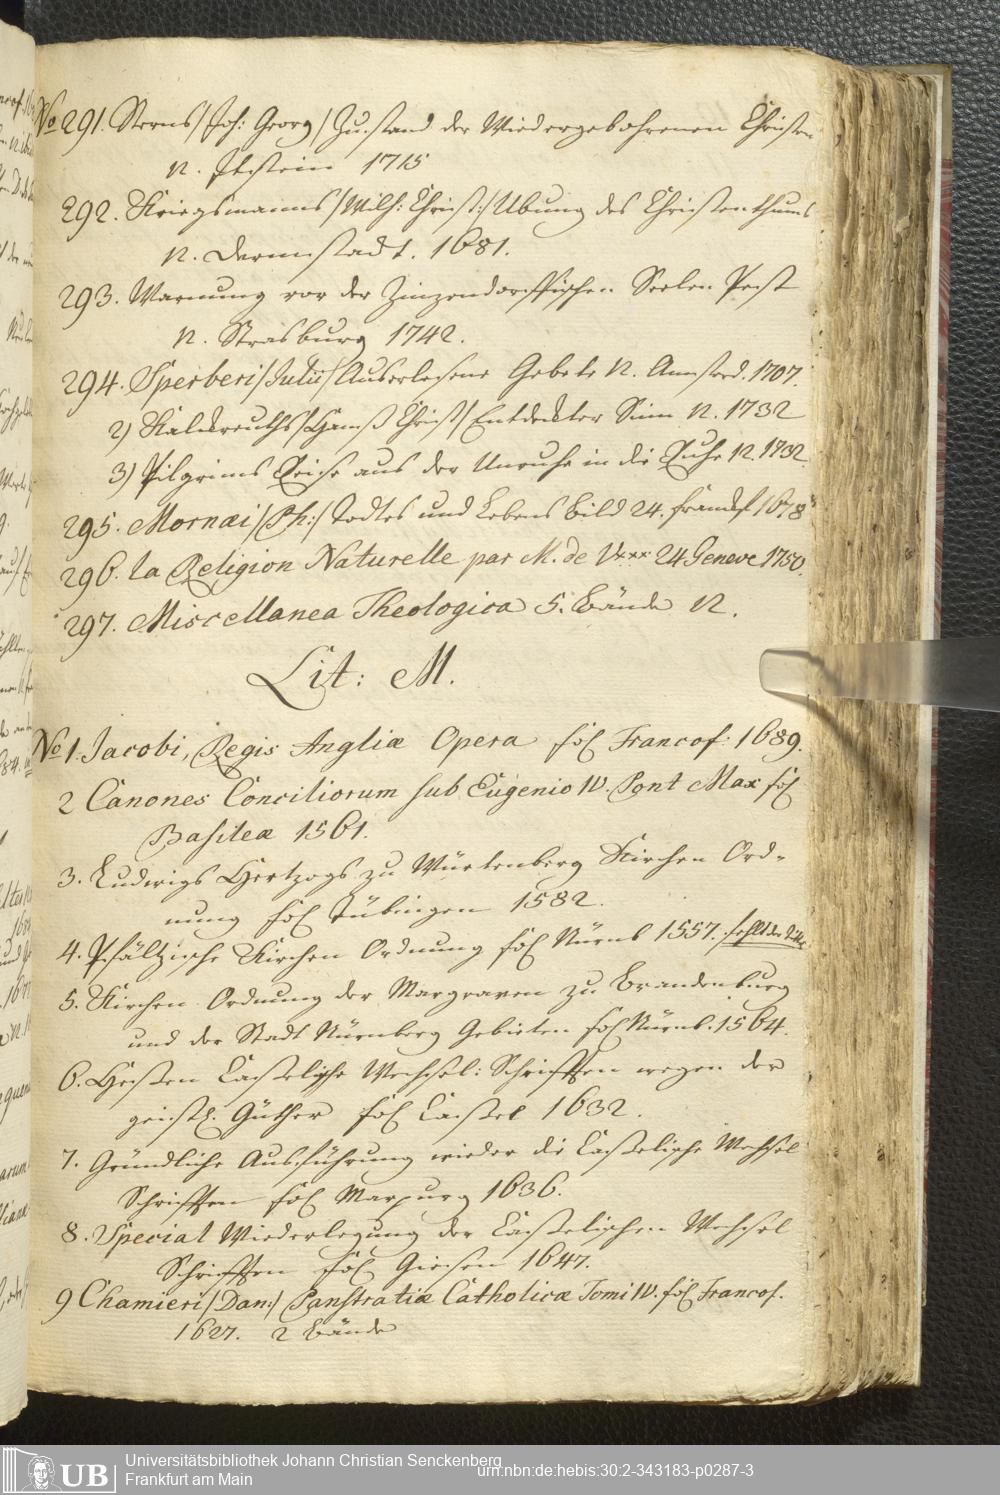 No 291. Sterns /Joh: Georg/ Zustand der Wiedergebohrenen Christen
12. Idstein 1715
292. Kriegsmanns /Wilh: Christ:/ Ubung des Christenthums
12. Dermstadt. 1681.
293. Warnung vor der Zinzendorffischen Seelen Pest
12. Strasburg 1742.
294. Sperberi /Julii/ Auserlesene Gebete 12. Amsterd. 1707.
2) Kalckreuths /Hanß Christ/ Entdeckter Sinn 12. 1732
3) Pilgrims Reise aus der Unruhe in die Ruhe 12. 1732.
295. Mornæi /Ph:/ Todtes und Lebens bild 24. franckf. 1678
296. la Religion Naturelle par M. de V*** 24 Geneve 1750.
297. Miscellanea Theologica 5. Bände 12.
Lit: M.
No 1. Jacobi, Regis Angliæ Opera fol Francof: 1689.
2 Canones Conciliorum sub Eugenio IV. Pont Max fol
Basileæ 1561.
3. Ludwigs Hertzogs zu Würtenberg Kirchen Ord-
nung fol Tübingen 1582.
4. Pfältzische Kirchen Ordnung fol Nürnb 1557. fehlt der Title
5. Kirchen Ordnung der Margraven zu Brandenburg
und der Stadt Nürnberg Gebieten fol Nürnb. 1564.
6. Hessen Casselische Wechsel: Schrifften wegen der
geistl. Güther fol Cassel 1632.
7. Gründliche Ausführung wieder die Casselische Wechsel
Schrifften fol Marpurg 1636.
8. Special Wiederlegung der Casselischen Wechsel
Schrifften fol Giesen 1647.
9 Chamieri /Dan:/ Panstratiæ Catholicæ Tomi IV. fol Francof.
1627. 2 Bände
UB
Universitätsbibliothek Johann Christian Senckenberg
Frankfurt am Main
urn:nbn:de:hebis:30:2-343183-p0287-3